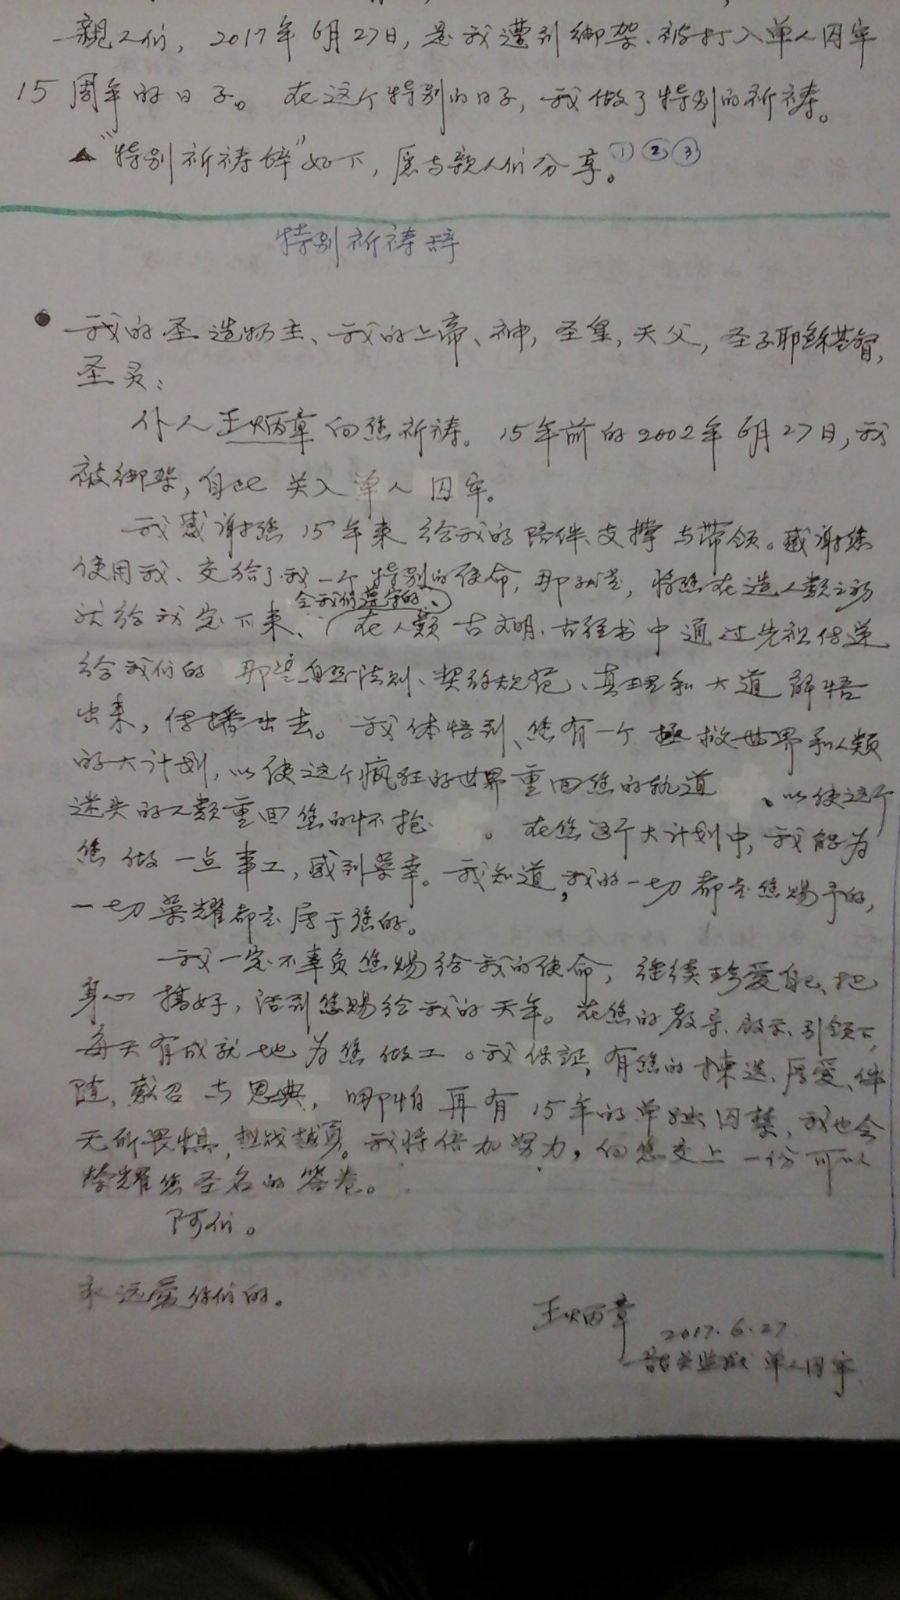 亲人们，2017年6月27日，是我遭到绑架、被打入单人囚牢
15周年的日子。在这个特别的日子，我做了特别的祈祷。
▲“特别祈祷辞”如下，愿与亲人们分享。①②③
特别祈祷辞
● 我的圣造物主、我的上帝、神，圣皇，天父，圣子耶稣基督，
圣灵：
仆人王炳章向您祈祷。15年前的2002年6月27日，我
被绑架，自此关入单人囚牢。
我感谢您15年来给我的陪伴、支撑与带领。感谢您
使用我、交给了我一个特别的使命，那就是，将您在造人类之初
就给我定下来、
令我们遵守的、
在人类古文明、古经书中通过先祖传递
给我们的那些自然法则、契约规范、真理和大道解悟
出来，传播出去。我体悟到、您有一个拯救世界和人类
的大计划，以使这个疯狂的世界重回您的轨道、以使这个
迷失的人类重回您的怀抱。在您这个大计划中，我能为
您做一点事工，感到荣幸。我知道，我的一切都是您赐予的，
一切荣耀都是属于您的。
我一定不辜负您赐给我的使命，继续珍爱自己、把
身心搞好，活到您赐给我的天年。在您的教导、启示、引领下，
每天有成就地为您做工。我保证，有您的拣选、厚爱、伴
随、感召与恩典，哪怕再有15年的单独囚禁，我也会
无所畏惧，越战越勇。我将倍加努力，向您交上一份可以
荣耀您圣名的答卷。
阿们。
永远爱你们的。
王炳章
2017.6.27
韶关监狱 单人囚牢